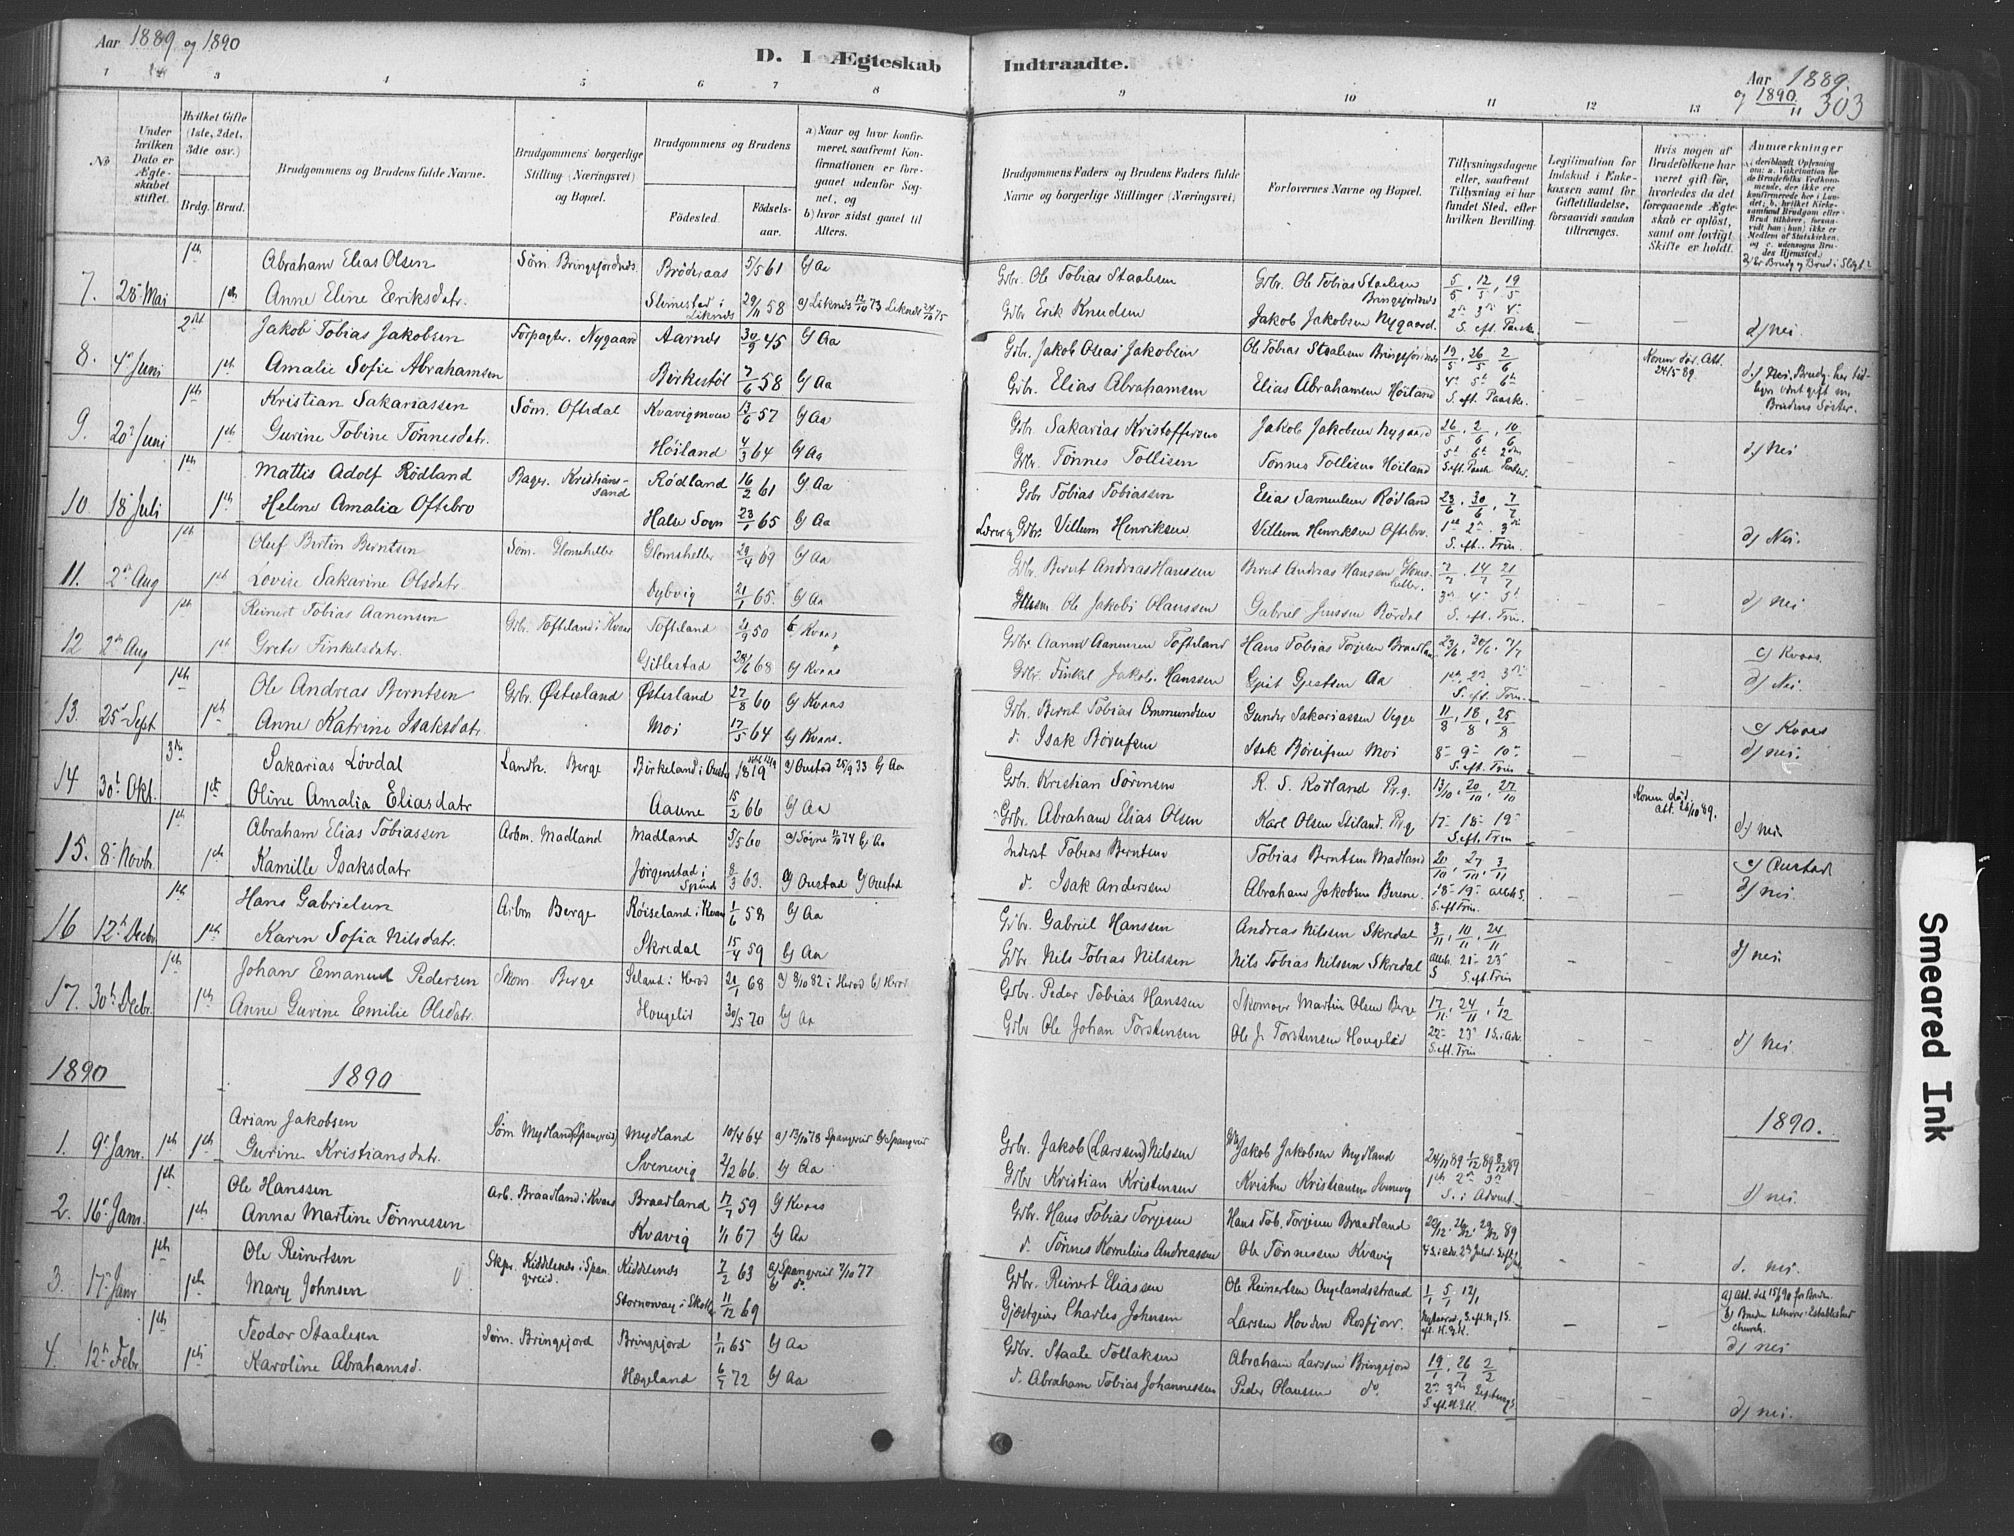 Aar 1889 og 1890
D. I Ægteskab Indtraadte.
Aar 1889
og 1890
303
1 3 4 5 6 7 8 9 10 11 12 13
No
Under hvilken Dato er Ægteskabet stiftet.
Hvilket Gifte (1ste, 2det, 3die osv.)
Brdg. Brud.
Brudgommens og Brudens fulde Navne.
Brudgommens borgerlige Stilling (Næringsvei) og Bopæl.
Brudgommens og Brudens
Fødested. Fødselsaar.
a) Naar og hvor konfirmeret, saafremt Konfirmationen er foregaaet udenfor Sognet, og
b) hvor sidst gaaet til Alters.
Brudgommens Faders og Brudens Faders fulde Navne og borgerlige Stillinger (Næringsvei)
Forlovernes Navne og Bopæl.
Tillysningsdagene eller, saafremt Tillysning ei har fundet Sted, efter hvilken Bevilling.
Legitimation for Indskud i Enkekassen samt for Giftetilladelse, forsaavidt saadan tiltrænges.
Hvis nogen af Brudefolkene har været gift før, hvorledes da det foregaaende Ægteskab er opløst, samt om lovligt Skifte er holdt.
Anmærkninger
7. 28 Mai 1ste 1ste
Abraham Elias Olsen Søm. Bringsjordnes. Brødraas 5/5 61 b) Aa
Anne Eline Eriksdatr. Slimestad i Liknes 29/11 58 a) Liknes 12/10 73 Liknes
Gbr. Ole Tobias Staalesen Gbr. Ole Tobias Staalesen Bringsjordnes 5/5. 12/5. 19/5
Gbr Erik Knudsen Jakob Jakobsen Nygaard. S. eft. Paaske d) nei
8. 4de Juni 2det 1ste
Jakob Tobias Jakobsen Forpagter. Nygaard Aarnes 30/9 45 b) Aa
Amalie Sofie Abrahamsen Birkestøl 7/6 58 b) Aa
Gbr. Jakob Oleas Jakobsen Ole Tobias Staalesen Bringsjordnes 19/5. 26/5 2/6 Konen død. Att. 24/5 89.
Gbr. Elias Abrahamsen Elias Abrahamsen Høiland S. eft. Paaske. d) Nei. Brudg. har tidligere været gift m. Brudens Søster.
9. 20de Juni 1ste 1ste
Kristian Sakariassen Søm. Oftedal Kvavigmoen 13/6 57 b) Aa
Gurine Tobine Tønnesdatr. Høiland 4/3 64 b) Aa
Gbr. Sakarias Kristoffersen Jakob Jakobsen Nygaard 26/5. 2/6. 10/6
Gbr. Tønnes Tollisen Tønnes Tollisen Høiland d) nei
10. 18de Juli 1ste 1ste
Mattis Adolf Rødland Bager. Kristianssand Rødland 16/2 61 b) Aa
Helene Amalia Oftebro Halse Sogn 23/1 65 b) Aa
Gbr Tobias Tobiassen Elias Samuelsen Rødland 23/6. 30/6. 7/7
Lærer og Gbr. Villum Henriksen Villum Henriksen Oftebro. S. eft. Trin. d) Nei.
11. 2den Aug 1ste 1ste
Oluf Bertin Berntsen Søm. Glomsheller Glomsheller 29/4 69 b) Aa
Lovise Sakarine Olsdatr. Dybvig 21/1 65. b) Aa
Gbr. Bernt Andreas Hanssen Bernt Andreas Hanssen Glomsheller 7/7. 14/7 21/7
Husm Ole Jakob Olaussen Gabriel Jenssen Rørdal S. eft. Trin. d) nei
12 2den Aug 1ste 1ste
Reinert Tobias Aanensen Gbr. Tofteland i Kvaas Tofteland 21/9 50 b) Kvaas
Grete Finkelsdatr. Gitlestad 28/6 68 b) Kvaas
Gbr Aanen Aanensen Tofteland Hans Tobias Torjesen Braadland 23/6. 30/6. 7/7 c) Kvaas
Gbr. Finkel Jakob Hanssen Gjert Gjertsen Aa S. eft. Trin. d) Nei.
13. 25de Sept 1ste 1ste
Ole Andreas Berntsen Gbr. Østesland Østesland 27/8 60 b) Kvaas
Anne Katrine Isaksdatr. Moi 17/5 64 b) Kvaas.
Gbr. Bernt Tobias Ommundsen Gunder Sakariassen Vegge 11/8. 18/8. 25/8 c) Kvaas
d. Isak Børufsen Isak Børufsen Moi 8de 9de 10de S. eft. Trin. d) nei.
14 30te Okt. 3die 1ste
Sakarias Løvdal Landh. Berge Birkeland i Oustad 1819 a) Oustad 25/9 33 b) Aa
Oline Amalia Eliasdatr Aaune 15/2 66 b) Aa
Gbr. Kristian Sørensen R. S. Rødland Prg. 13/10. 20/10. 27/10 Konen død. att. 26/10 89.
Gbr. Abraham Elias Olsen Karl Olsen Stiland. Prg 17de 18de 19de S. eft. Trin d) nei
15. 8de Novbr. 1ste 1ste
Abraham Elias Tobiassen Arbm. Madland Madland 5/5 60 a) Søgne 74 b) Aa
Kamille Isaksdatr Jørgenstad i Spind 8/3 63. a) Oustad b) Oustad
Inderst Tobias Berntsen Tobias Berntsen Madland 20/10. 27/10. 3/11 c) Oustad
d. Isak Anderssen Abraham Jakobsen Berene. S. eft Trin. d) nei.
16 12te Decbr. 1ste 1ste
Hans Gabrielsen Arbm Berge Røiseland i Kvaas 1/6 58 b) Aa
Karen Sofia Nilsdatr. Skredal 15/4 59 b) Aa
Gbr. Gabriel Hanssen Andreas Nilsen Skredal 3/11. 10/11. 24/11
Gbr Nils Tobias Nilssen Nils Tobias Nilssen Skredal S. eft Trin d) nei
17. 30te Decbr. 1ste 1ste
Johan Emanuel Pedersen Skom Berge Seland i Herod 21/1 68 a) 8/10 82 i Herod b) Herod
Anne Gurine Emilie Olsdatr. Hougelid 30/5 70 b) Aa
Gbr. Peder Tobias Hanssen Skomager Martin Olsen Berge 17/11. 24/11. 1/12
Gbr Ole Johan Torstensen Ole J. Torstensen Hougelid 22de 23de 1 S. i Adv. S. eft. Trin d) nei.
1890 1890 1890.
1. 9de Janr. 1ste 1ste
Arian Jakobsen Søm Mydland (Spangreid) Mydland 10/4 64 a) 13/10 78 Spangreid b) Spangreid
Gurine Kristiansdatr. Svenevig 2/2 66. b) Aa
Gbr. Jakob (Larssen) Nilssen Gbr Jakob Jakobsen Mydland 24/11 89 1/12 89 8/12 89
Gbr. Kristian Kristensen Kristen Kristiansen Svenevig S. i Advent. d) nei
2. 16de Janr. 1ste 1ste
Ole Hanssen Arb. Braadland i Kvaas Braadland 17/7 59 b) Kvaas
Anna Martine Tønnessen Kvavig 1/11 67 b) Aa
Gbr. Hans Tobias Torjesen Hans Tob. Torjesen Braadland 22/12. 26/12. 29/12 89
d. Tønnes Kornelius Andreassen Ole Tønnessen Kvavig d. nei.
3. 17de Janr 1ste 1ste
Ole Reinertsen Skpr. Kiddelnes i Spangreid. Kiddelnes 7/2 63 a) Spangreid 7/10 77
Mary Johnsen Stornoway i Skotl. 11/12 69 b) d.
Gbr. Reinert Eliassen Ole Reinertsen Ougelandsstrand 1/1 5/1 12/1
Gjæstgiver Charles Johnsen Larssen Houden Rosfjord. a) Att. det 15/1 90 for Bruden. b) Bruden tilhører Established church. d) nei
4. 12te Febr. 1ste 1ste
Teodor Staalesen Søm. Bringsjord Bringsjord 1/11 65 b) Aa
Karoline Abrahamsd. Hægeland 6/7 72 b) Aa
Gbr. Staale Tollaksen Abraham Larssen Bringsjord 19/1. 26/1 2/2
d. Abraham Tobias Johannessen Peder Olaussen do. d) nei.
Smeared Ink